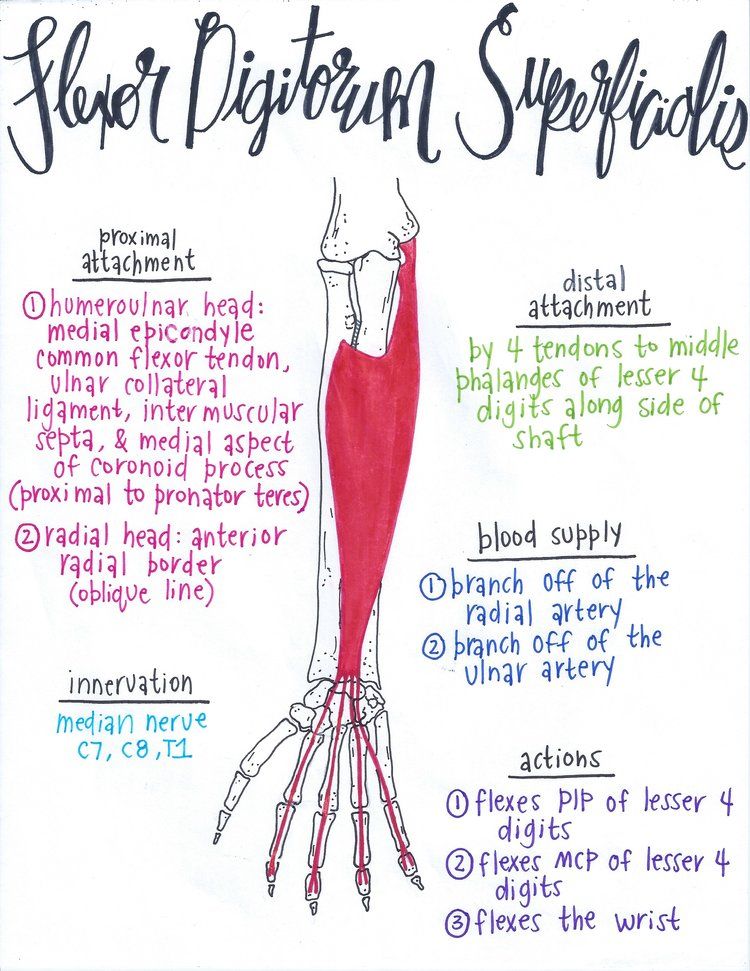 Flexor Digitorum Superficialis
proximal
attachment
① humeroulnar head:
medial epicondyle
common flexor tendon,
ulnar collateral
ligament, intermuscular
septa, & medial aspect
of coronoid process
(proximal to pronator teres)
② radial head: anterior
radial border
(oblique line)
innervation
median nerve
C7, C8, T1
distal
attachment
by 4 tendons to middle
phalanges of lesser 4
digits along side of
shaft
blood supply
① branch off of the
radial artery
② branch off of the
ulnar artery
actions
① flexes PIP of lesser 4
digits
② flexes MCP of lesser 4
digits
③ flexes the wrist